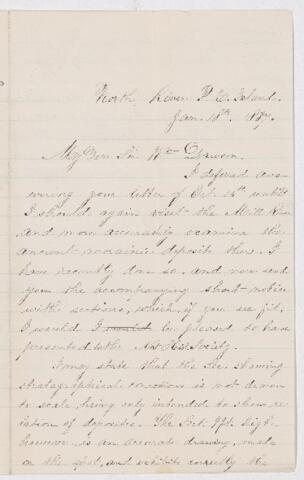 North River P. E. Island.
Jan. 18th. 187
My Dear Sir Wm Dawson
I defered ans-
wering your letter of Oct. 16th untill
I should again visit the Mill River
and more accurately examine the
ancient moraine deposite there. I
have recently don so, and now send
you the accompanying short notice
with sections, which, if you see fit,
I would I would be pleased to have
presented to the Nat. Hist. Society.
I may state that the Sec. showing
stratagraphical conections is not drawn
to scale, being only intended to show re-
lation of deposites. The Sect. 9ft. high.
however, is an accurate drawing, made
on the spot, and exhibits correctly the